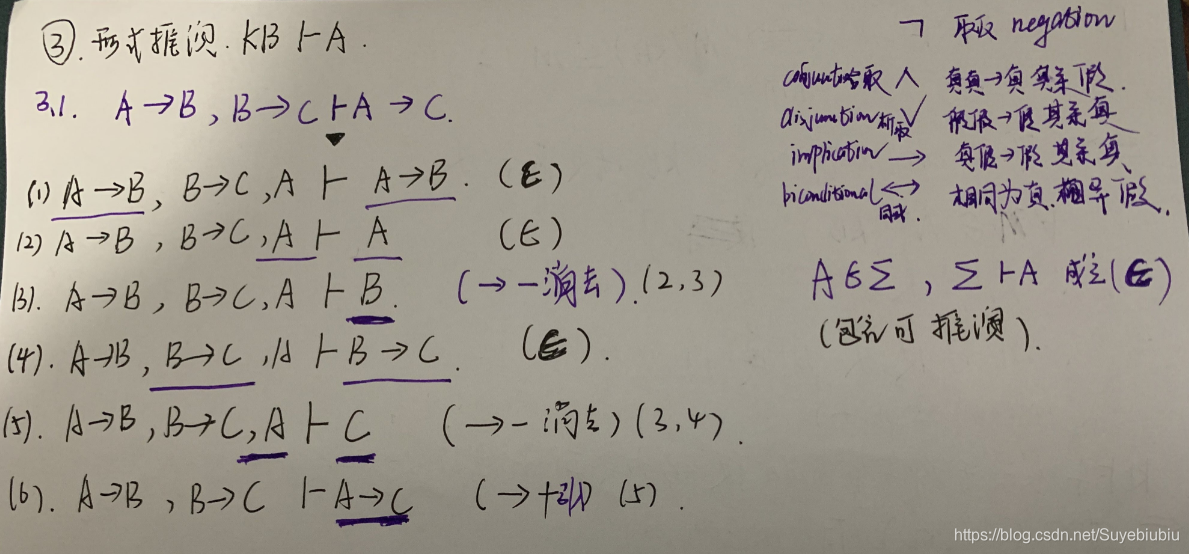 ③. 形式推演. KB ⊢ A.
3.1. A → B, B → C ⊢ A → C.
(1) A → B, B → C, A ⊢ A → B. (∈)
(2) A → B, B → C, A ⊢ A (∈)
(3). A → B, B → C, A ⊢ B. (→ - 消去). (2,3)
(4). A → B, B → C, A ⊢ B → C. (∈).
(5). A → B, B → C, A ⊢ C (→ - 消去) (3,4).
(6). A → B, B → C ⊢ A → C (→ + 引) (5).
¬ negation
合取 ∧ 真真→真 其余假.
disjunction 析取 ∨ 假假→假 其余真
implication → 真假→假 其余真
biconditional ↔ 相同为真. 相异假.
同或.
A ∈ Σ, Σ ⊢ A 成立 (∈)
(包含可推演).
https://blog.csdn.net/Suyebiubiu